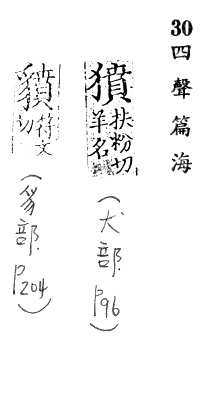 30 四聲篇海
獖 扶粉切 羊名
(犬部 P96)
豶 符文切
(豸部 P204)